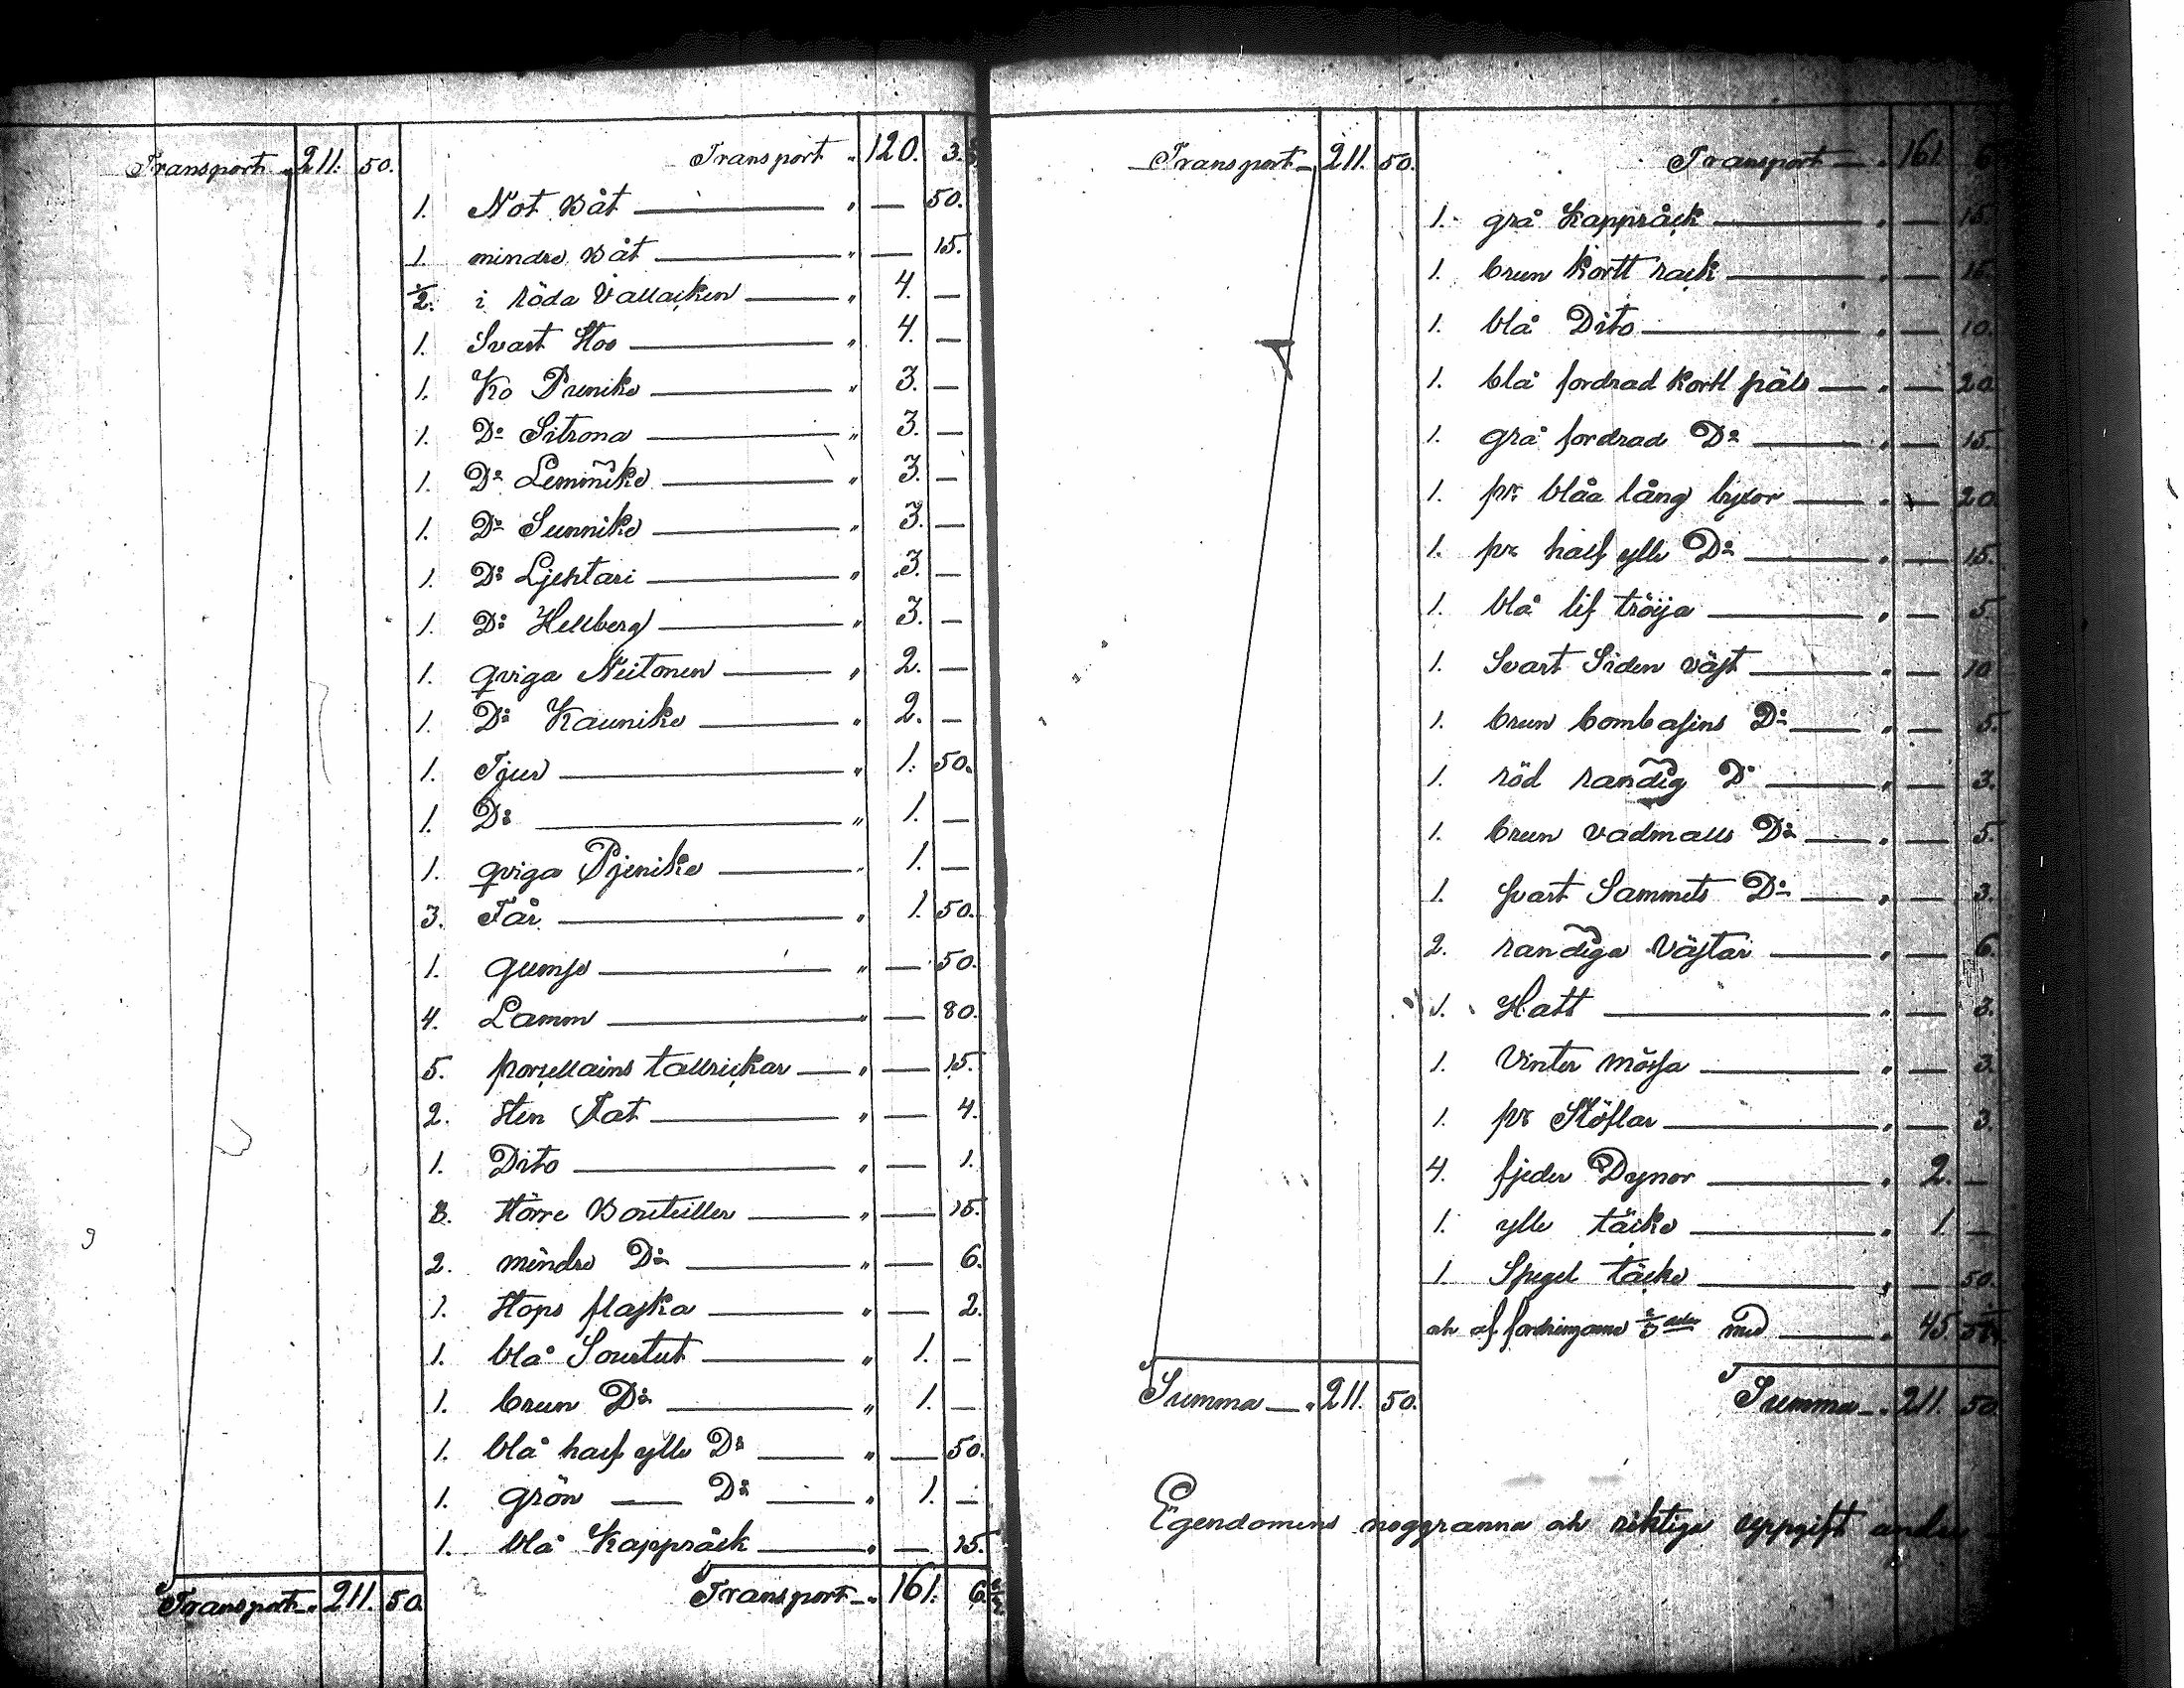 Transport " 211. 50.
Transport " 120. 3.
1. Not Båt — " — 50.
1. mindre Båt — " — 15.
1/2. i röda Vallacken — " 4. —
1. Svart Stoo — " 4. —
1. Ko Prunike — " 3. —
1. Do Sitrona — " 3. —
1. Do Lemnike — " 3. —
1. Do Sunnike — " 3. —
1. Do Ljektari — " 3. —
1. Do Hellberg — " 3. —
1. qviga Neitonen — " 2. —
1. Do Kaunike — " 2. —
1. Tjur — " 1. 50.
1. Do — " 1. —
1. qviga Pjenike — " 1. —
3. Får — " 1. 50.
1. gumse — " — 50.
4. Lamm — " — 80.
5. porcellains tallrickar — " — 15.
2. sten Fat — " — 4.
1. Dito — " — 1.
3. större Bouteiller — " — 15.
2. mindre Do — " — 6.
1. stops flaska — " — 2.
1. blå Sourtut — " 1. —
1. brun Do — " 1. —
1. blå half ylle Do — " — 50.
1. grön — Do — " 1. —
1. blå Kappråck — " — 25.
Transport " 211. 50.
Transport " 161. 6 1/2
Transport " 211. 50.
Transport " 161. 6
1. grå Kappråck — " — 15.
1. brun kortt rack — " — 15.
1. blå Dito — " — 10.
1. blå fordrad kortt päls — " — 20.
1. grå fordrad Do — " — 15.
1. pr. blåa lång byxor — " — 20.
1. pr half ylle Do — " — 15.
1. blå lif tröija — " — 5.
1. Svart Siden väst — " — 10
1. brun bombasins Do — " — 5.
1. röd randig Do — " — 3.
1. brun vadmalls Do — " — 5.
1. svart Sammets Do — " — 3.
2. randiga Västar — " — 6.
1. Hatt — " — 3.
1. Vinter mössa — " — 3.
1. pr Stöflar — " — 3.
4. fjeder Dynor — " 2. —
1. ylle täcke — " 1. —
1. Spegel täcke — " — 50.
och af fordringarne med — " 45.
Summa " 211. 50.
Summa " 211. 50.
Egendomens noggranna och riktiga uppgift